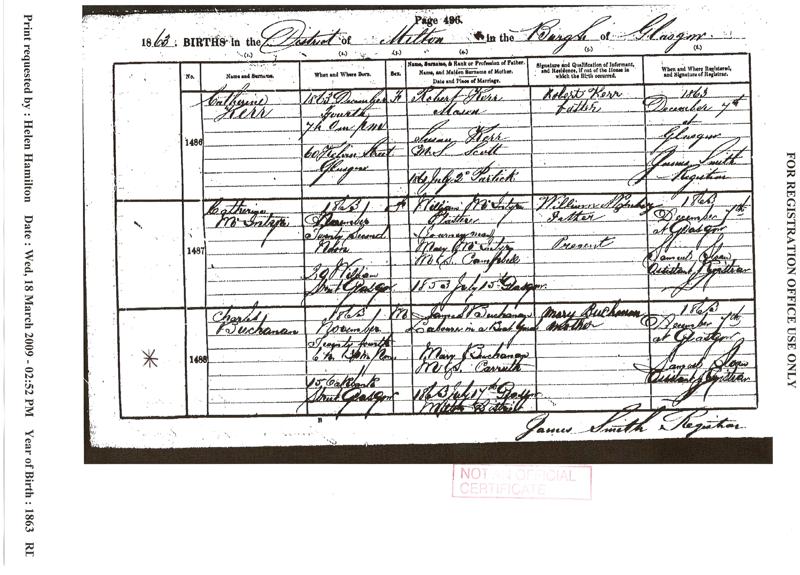 Page 496.
1863. BIRTHS in the District of Milton in the Burgh of Glasgow
No.
Name and Surname.
When and Where Born.
Sex.
Name, Surname, & Rank or Profession of Father.
Name, and Maiden Surname of Mother.
Date and Place of Marriage.
Signature and Qualification of Informant,
and Residence, if out of the House in
which the Birth occurred.
When and Where Registered,
and Signature of Registrar.
1486
Catherine
Kerr
1863 December
Fourth
7h 0m PM
60 Kelvin Street
Glasgow
F
Robert Kerr
Mason
Susan Kerr
M.S. Scott
July 2d Partick
Robert Kerr
Father
1863
December 7th
at
Glasgow
James Smith
Registrar
1487
Catherine
McIntyre
1863
November
Twenty Second
Noon
29 William
Street Glasgow
F
William McIntyre
Journeyman
Mary McIntyre
M.S. Campbell
1853 July 15th Glasgow
William
Father
Present
1863
December 7th
at Glasgow
Samuel Sloan
Assistant Registrar
1488
Charles
Buchanan
1863
November
Twenty fourth
15 Oakbank
Street Glasgow
M
James Buchanan
Labourer in a
Mary Buchanan
M.S. Carruth
1863 July 17th Glasgow
Milton District
Mary Buchanan
Mother
1863
December 7th
at Glasgow
Samuel Sloan
Assistant Registrar
James Smith Registrar
B
NOT AN OFFICIAL
CERTIFICATE
Print requested by : Helen Hamilton Date : Wed, 18 March 2009 - 02:52 PM Year of Birth : 1863
FOR REGISTRATION OFFICE USE ONLY